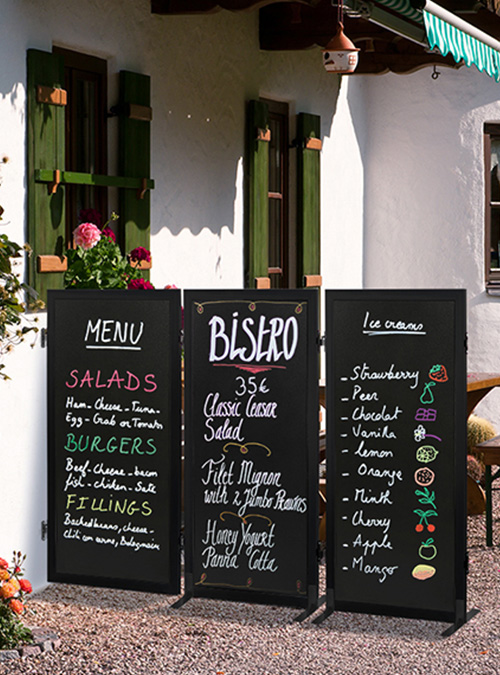 MENU
SALADS
Ham - Cheese - Tuna -
Egg - Crab or Tomato
BURGERS
Beef - Cheese - bacon
fish - chicken - Sate
FILLINGS
Backed beans, cheese -
Chili con carne, Bolognaise
BISTRO
35€
Classic Ceasar
Salad
Filet Mignon
with 2 Jumbo Prawns
Honey Yogurt
Panna Cotta
Ice creams
- Strawberry
- Peer
- Chocolat
- Vanilla
- lemon
- Orange
- Minth
- Cherry
- Apple
- Mango